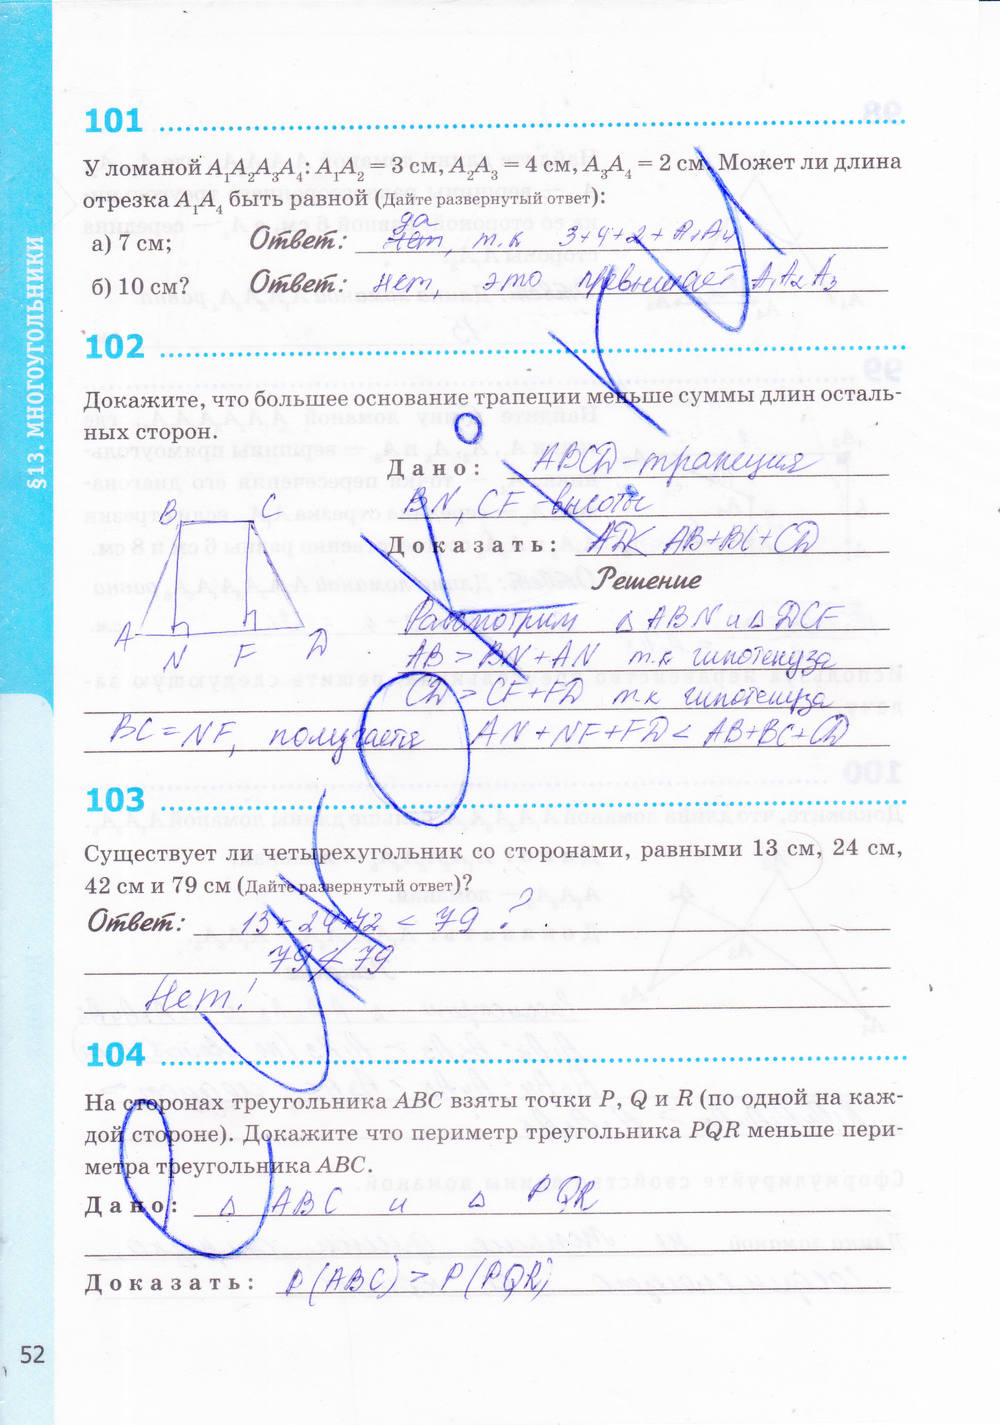 101
У ломаной A₁A₂A₃A₄: A₁A₂ = 3 см, A₂A₃ = 4 см, A₃A₄ = 2 см. Может ли длина
отрезка A₁A₄ быть равной (Дайте развернутый ответ):
да
а) 7 см; Ответ: нет т.к 3+4+2 + A₁A₄
б) 10 см? Ответ: нет, это превышает A₁A₂A₃
102
Докажите, что большее основание трапеции меньше суммы длин осталь-
ных сторон.
Дано: ABCD-трапеция
BN, CF-высоты
Доказать: AD< AB+BC+CD
Решение
Рассмотрим △ ABN и △ DCF
AB > BN+AN т.к гипотенуза
CD > CF+FD т.к гипотенуза
BC = NF, получаете AN+NF+FD < AB+BC+CD
B C
A N F D
103
Существует ли четырехугольник со сторонами, равными 13 см, 24 см,
42 см и 79 см (Дайте развернутый ответ)?
Ответ: 13+24+42 < 79 ?
79 ≮ 79
Нет!
104
На сторонах треугольника ABC взяты точки P, Q и R (по одной на каж-
дой стороне). Докажите что периметр треугольника PQR меньше пери-
метра треугольника ABC.
Дано: △ ABC и △ PQR
Доказать: P(ABC) > P(PQR)
52
§13. МНОГОУГОЛЬНИКИ